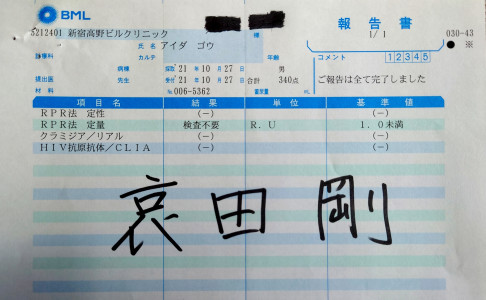 BML
報告書
5212401 新宿高野ビルクリニック 様 1/1 030-43
氏名 アイダ ゴウ
診療科 カルテ 年齢 コメント 12345
病棟 採取 21年10月27日 男
提出医 先生 受付 21年10月27日 合計 340点 ご報告は全て完了しました
材料 No 006-5362
項目名 結果 単位 基準値
RPR法 定性 (-) (-)
RPR法 定量 検査不要 R.U 1.0未満
クラミジア/リアル (-) (-)
HIV抗原抗体/CLIA (-) (-)
哀田剛